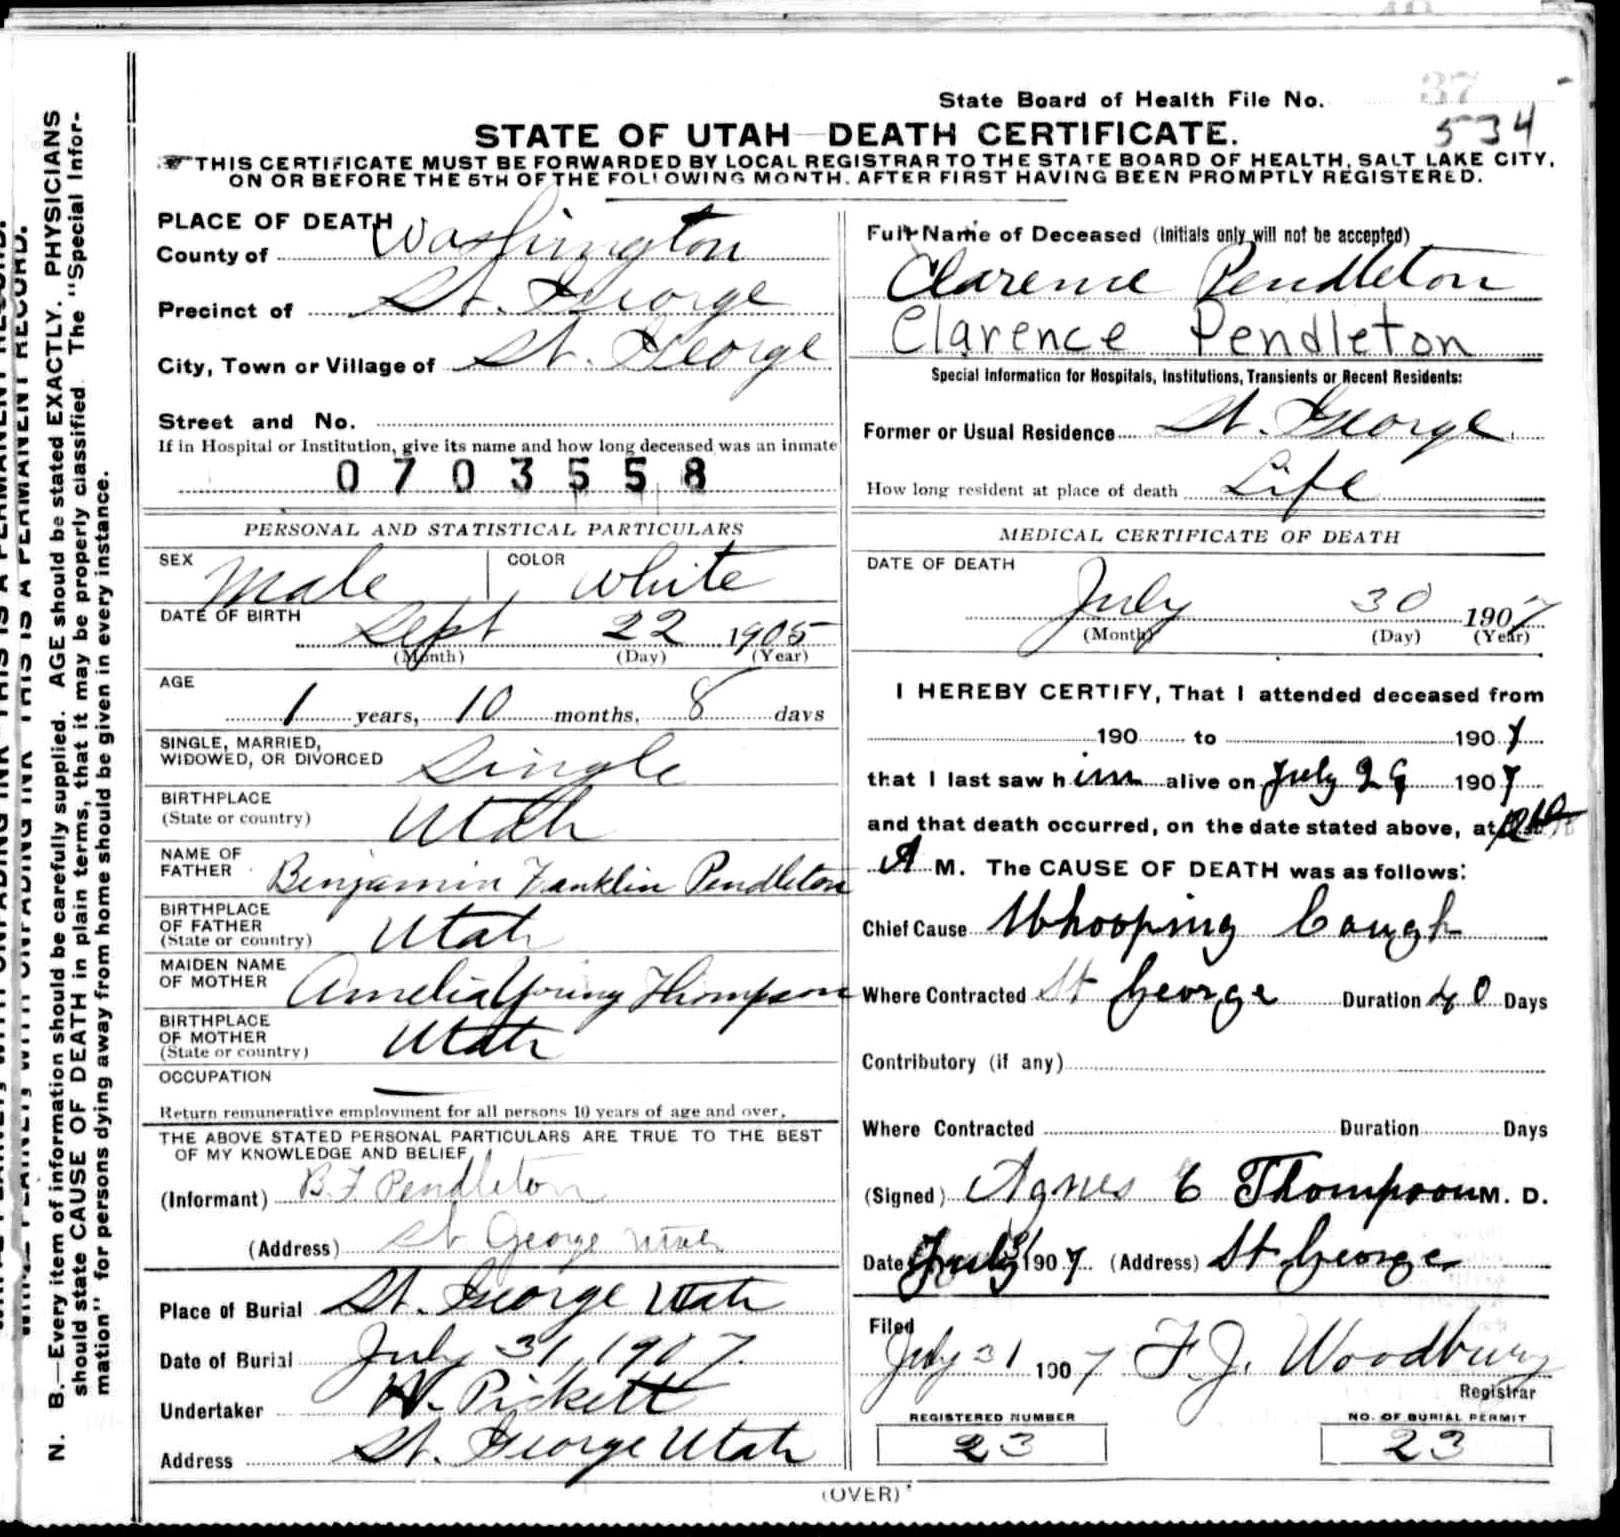 State Board of Health File No. 37
534
STATE OF UTAH DEATH CERTIFICATE.
THIS CERTIFICATE MUST BE FORWARDED BY LOCAL REGISTRAR TO THE STATE BOARD OF HEALTH, SALT LAKE CITY,
ON OR BEFORE THE 5TH OF THE FOLLOWING MONTH. AFTER FIRST HAVING BEEN PROMPTLY REGISTERED.
N. B.—Every item of information should be carefully supplied. AGE should be stated EXACTLY. PHYSICIANS
should state CAUSE OF DEATH in plain terms, that it may be properly classified. The "Special Infor-
mation" for persons dying away from home should be given in every instance.
THIS IS A PERMANENT RECORD.
PLACE OF DEATH
County of Washington
Precinct of St. George
City, Town or Village of St. George
Street and No.
If in Hospital or Institution, give its name and how long deceased was an inmate
0703558
PERSONAL AND STATISTICAL PARTICULARS
SEX Male COLOR White
DATE OF BIRTH
Sept 22 1905
(Month) (Day) (Year)
AGE
1 years, 10 months, 8 days
SINGLE, MARRIED,
WIDOWED, OR DIVORCED Single
BIRTHPLACE
(State or country) Utah
NAME OF
FATHER Benjamin Franklin Pendleton
BIRTHPLACE
OF FATHER
(State or country) Utah
MAIDEN NAME
OF MOTHER Amelia Young Thompson
BIRTHPLACE
OF MOTHER
(State or country) Utah
OCCUPATION
Return remunerative employment for all persons 10 years of age and over.
THE ABOVE STATED PERSONAL PARTICULARS ARE TRUE TO THE BEST
OF MY KNOWLEDGE AND BELIEF
(Informant) B. F Pendleton
(Address) St George Utah
Place of Burial St. George Utah
Date of Burial July 31, 1907.
Undertaker W. Pickett
Address St. George Utah
Full Name of Deceased (Initials only will not be accepted)
Clarence Pendleton
Clarence Pendleton
Special Information for Hospitals, Institutions, Transients or Recent Residents:
Former or Usual Residence St. George.
How long resident at place of death Life
MEDICAL CERTIFICATE OF DEATH
DATE OF DEATH
July 30 1907
(Month) (Day) (Year)
I HEREBY CERTIFY, That I attended deceased from
190 to 1907
that I last saw him alive on July 29 1907
and that death occurred, on the date stated above, at
A M. The CAUSE OF DEATH was as follows:
Chief Cause Whooping Cough
Where Contracted St George Duration 40 Days
Contributory (if any)
Where Contracted Duration Days
(Signed) Agnes C Thompson M. D.
Date July 31 1907 (Address) St George
Filed
July 31 1907 F. J. Woodbury
Registrar
REGISTERED NUMBER
23
NO. OF BURIAL PERMIT
23
(OVER)